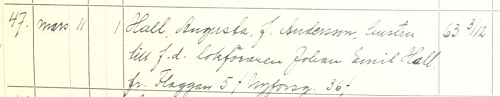 47. mars 11 1 Hall, Augusta, f. Andersson, hustru 63 9/12
till f.d. lokföraren Johan Emil Hall
fr. Flaggan 5 / Nyforsg. 36 /